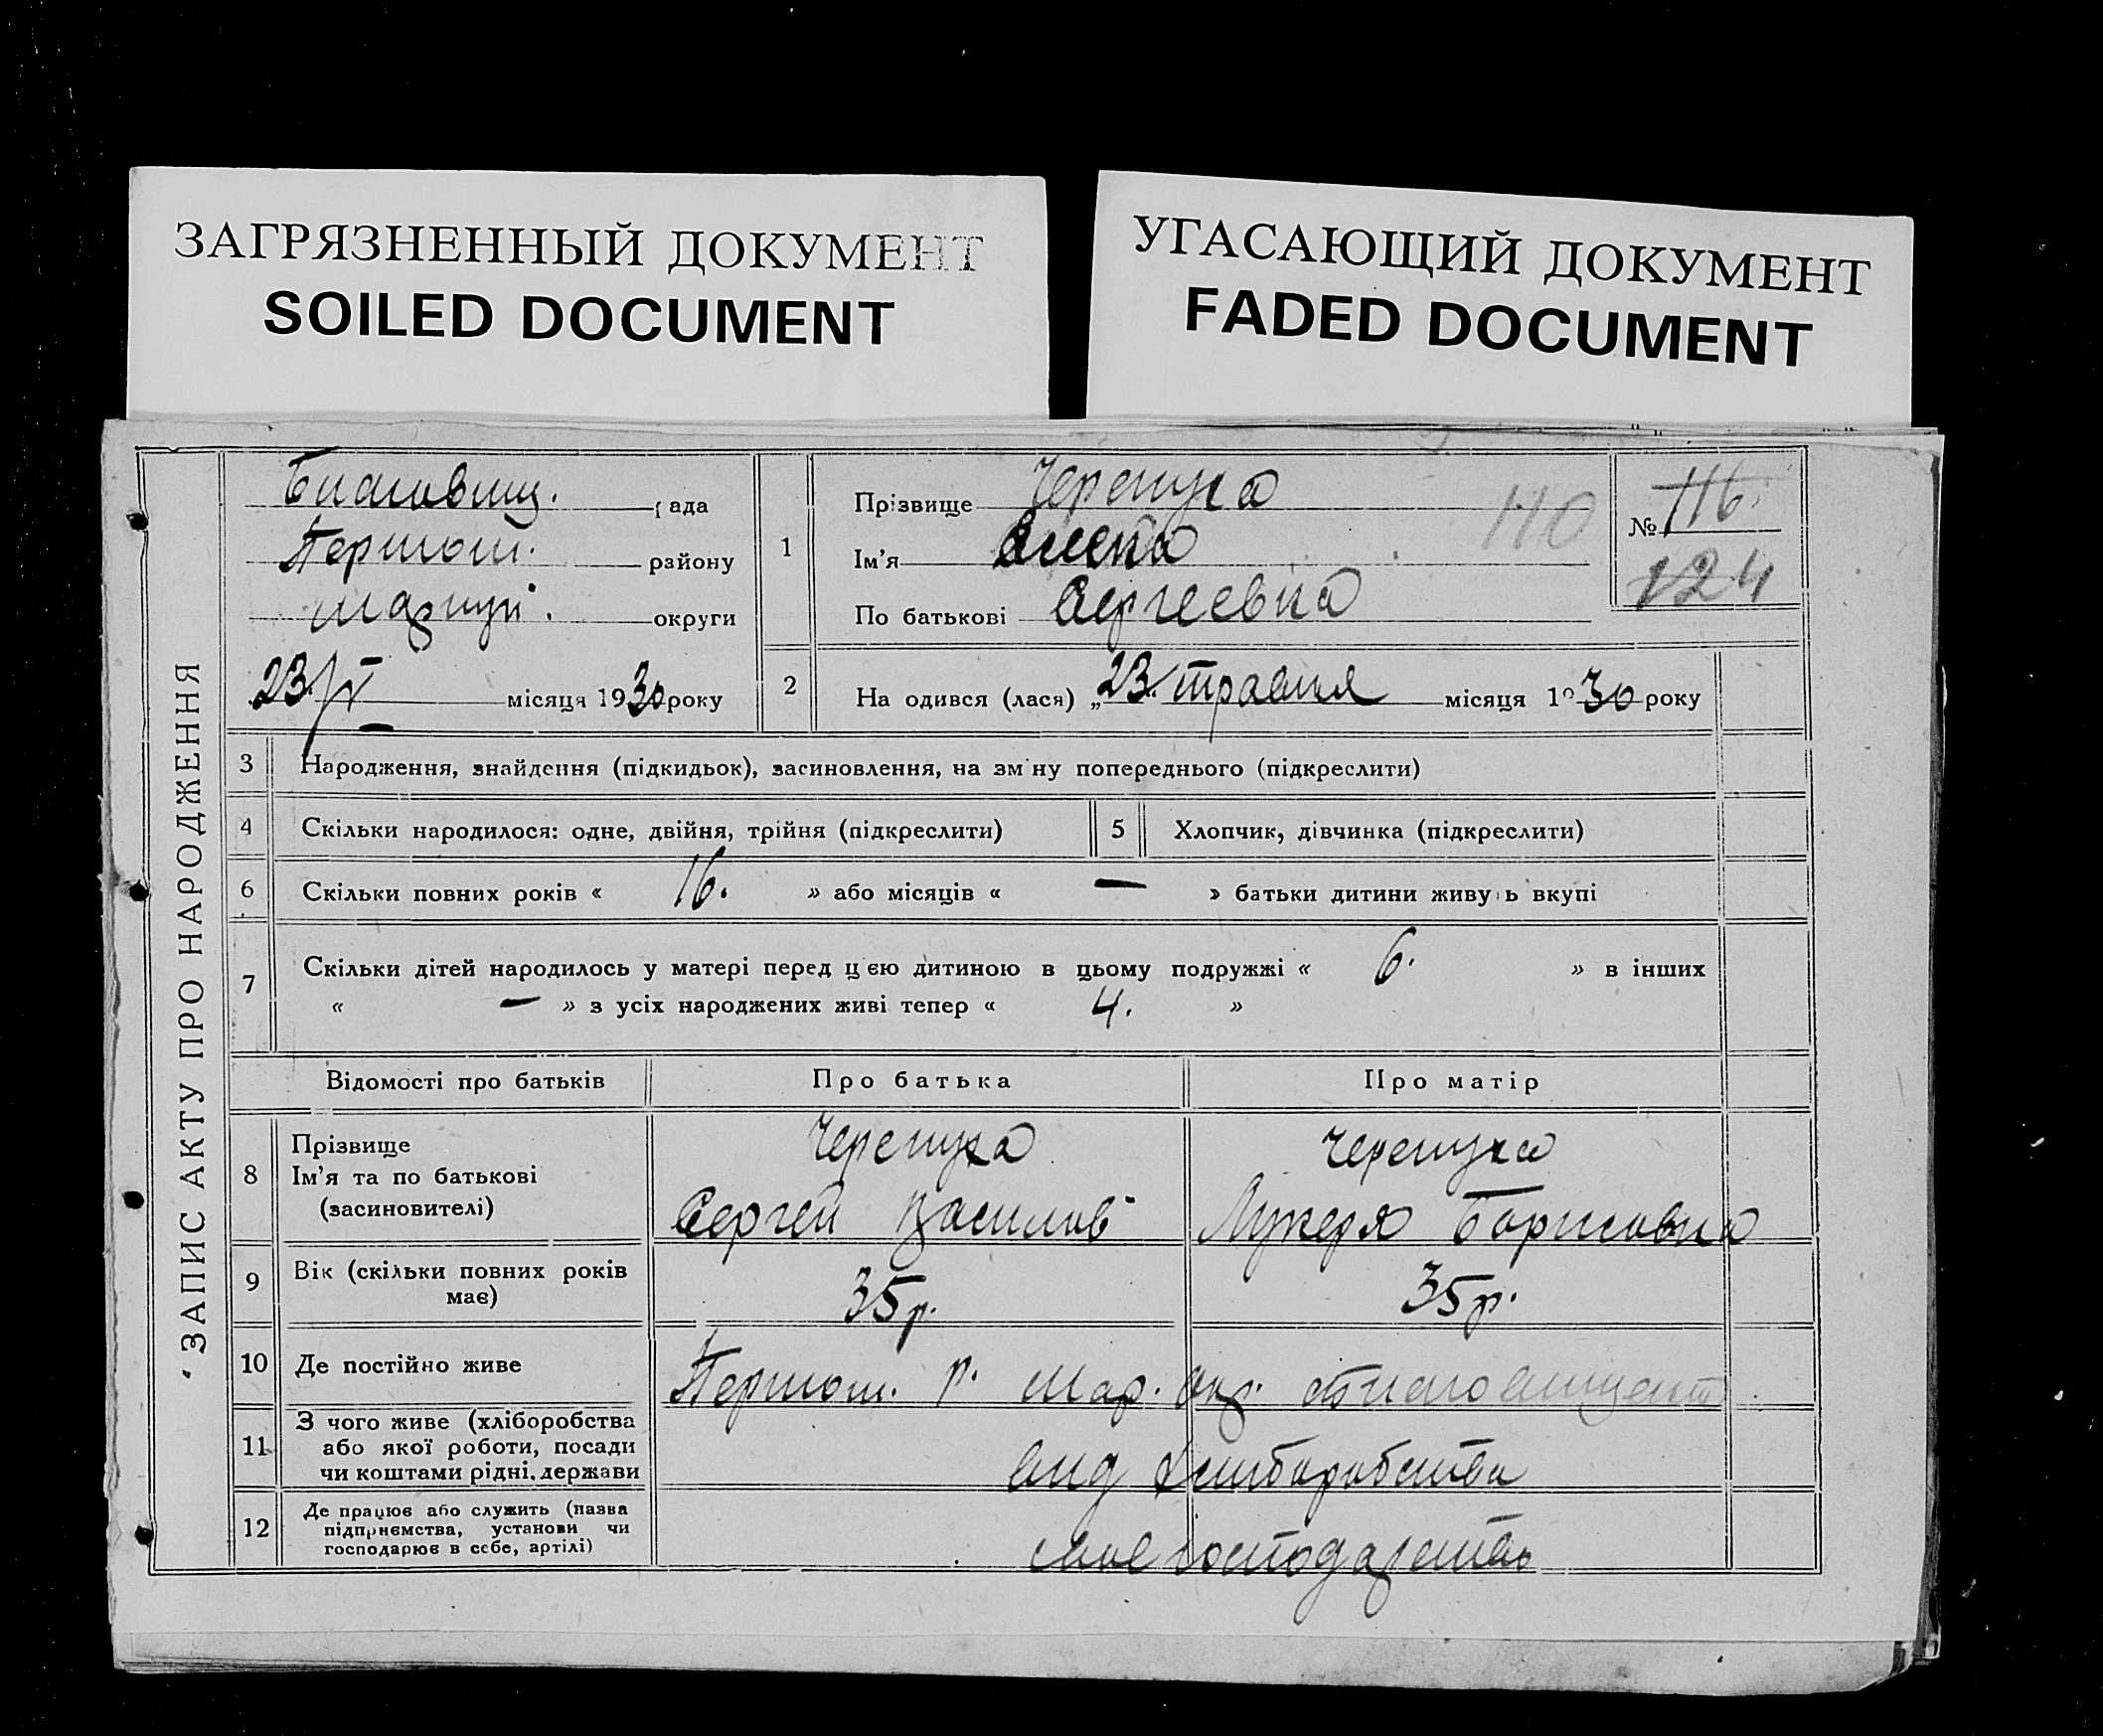 ЗАГРЯЗНЕННЫЙ ДОКУМЕНТ
SOILED DOCUMENT
УГАСАЮЩИЙ ДОКУМЕНТ
FADED DOCUMENT
ЗАПИС АКТУ ПРО НАРОДЖЕННЯ
ада
Першот. району
округи
23/V місяця 1930 року
1
Прізвище Черепуха
Ім'я Олена
По батькові Сергеевна
110
№ 116.
124
2 На одився (лася) „23 травня місяця 1930 року
3 Народження, знайдення (підкидьок), засиновлення, на зміну попереднього (підкреслити)
4 Скільки народилося: одне, двійня, трійня (підкреслити)
5 Хлопчик, дівчинка (підкреслити)
6 Скільки повних років « 16. » або місяців « — » батьки дитини живу ь вкупі
7 Скільки дітей народилось у матері перед цією дитиною в цьому подружжі « 6. » в інших
« — » з усіх народжених живі тепер « 4. »
Відомості про батьків Про батька Про матір
8 Прізвище
Ім'я та по батькові
(засиновителі)
Черепуха
Сергей Василів
Черепуха
Лукеря Борисовна
9 Вік (скільки повних років
має)
35 р. 35 р.
10 Де постійно живе Першот. р. Мар. окр.
11 З чого живе (хліборобства
або якої роботи, посади
чи коштами рідні, держави
від хліборобства
12 Де працює або служить (назва
підприємства, установи чи
господарює в себе, артілі)
своє господарство